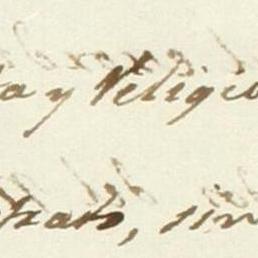 ia y Religio
trato, sin